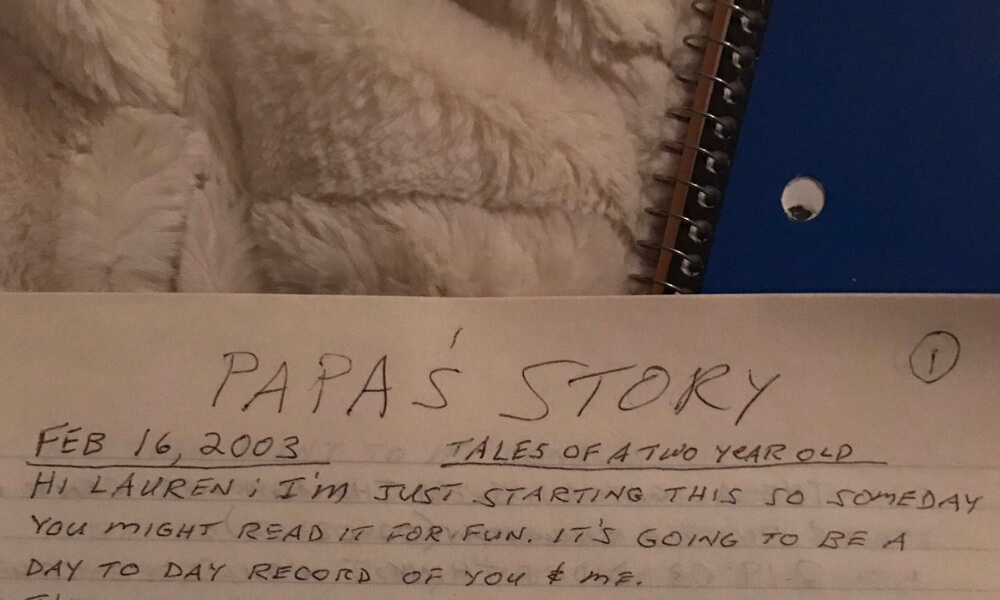 PAPA'S STORY
1
FEB 16, 2003 TALES OF A TWO YEAR OLD
HI LAUREN; I'M JUST STARTING THIS SO SOMEDAY
YOU MIGHT READ IT FOR FUN. IT'S GOING TO BE A
DAY TO DAY RECORD OF YOU & ME.